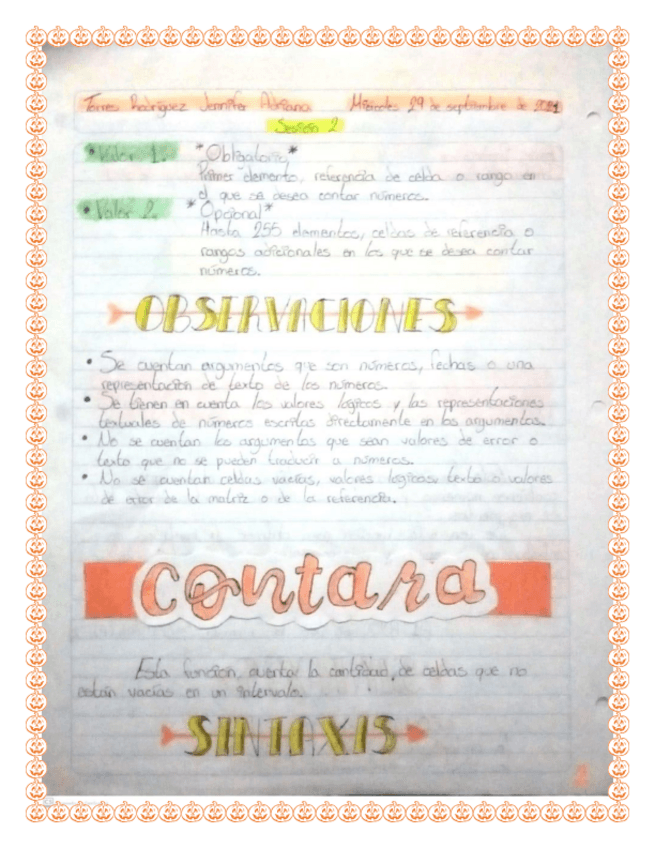 Torres Rodríguez Jennifer Adriana Miércoles 29 de septiembre de 2021
Sesión 2
• Valor 1. *Obligatorio*
Primer elemento, referencia de celda o rango en
el que se desea contar números.
• Valor 2. *Opcional*
Hasta 255 elementos, celdas de referencia o
rangos adicionales en los que se desea contar
números.
OBSERVACIONES
• Se cuentan argumentos que son números, fechas o una
representación de texto de los números.
• Se tienen en cuenta los valores lógicos y las representaciones
textuales de números escritos directamente en los argumentos.
• No se cuentan los argumentos que sean valores de error o
texto que no se pueden traducir a números.
• No se cuentan celdas vacías, valores lógicos, texto o valores
de error de la matriz o de la referencia.
contara
Esta función, cuenta la cantidad de celdas que no
están vacías en un intervalo.
SINTAXIS
2